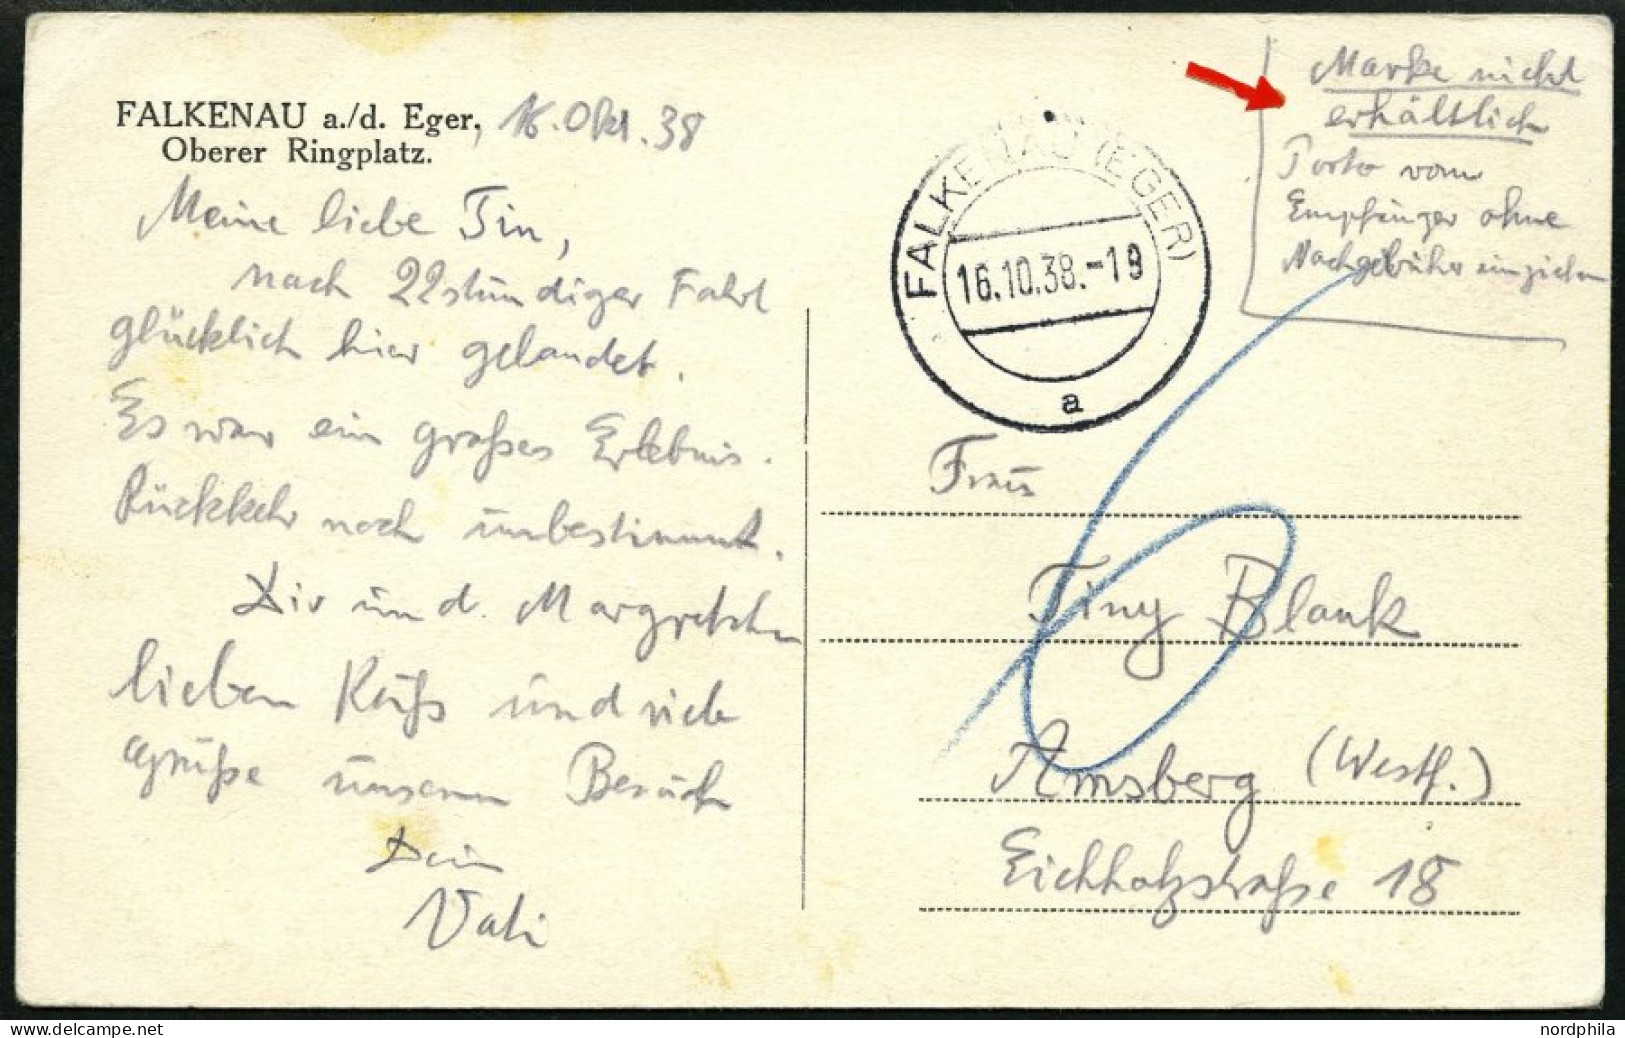 FALKENAU a./d. Eger, 16. Okt. 38
Oberer Ringplatz.
Meine liebe Tin,
nach 22stündiger Fahrt
glücklich hier gelandet.
Es war ein großes Erlebnis.
Rückkehr noch unbestimmt.
Dir und Margretchen
lieben Kuß und viele
Grüße unserem Besuch
Dein
Vati
Marke nicht
erhältlich
Porto vom
Empfänger ohne
Nachgebühr einziehen
FALKENAU (EGER)
16.10.38.-19
a
6
Frau
Tiny Blank
Arnsberg (Westf.)
Eichholzstraße 18
nordphila
www.delcampe.net